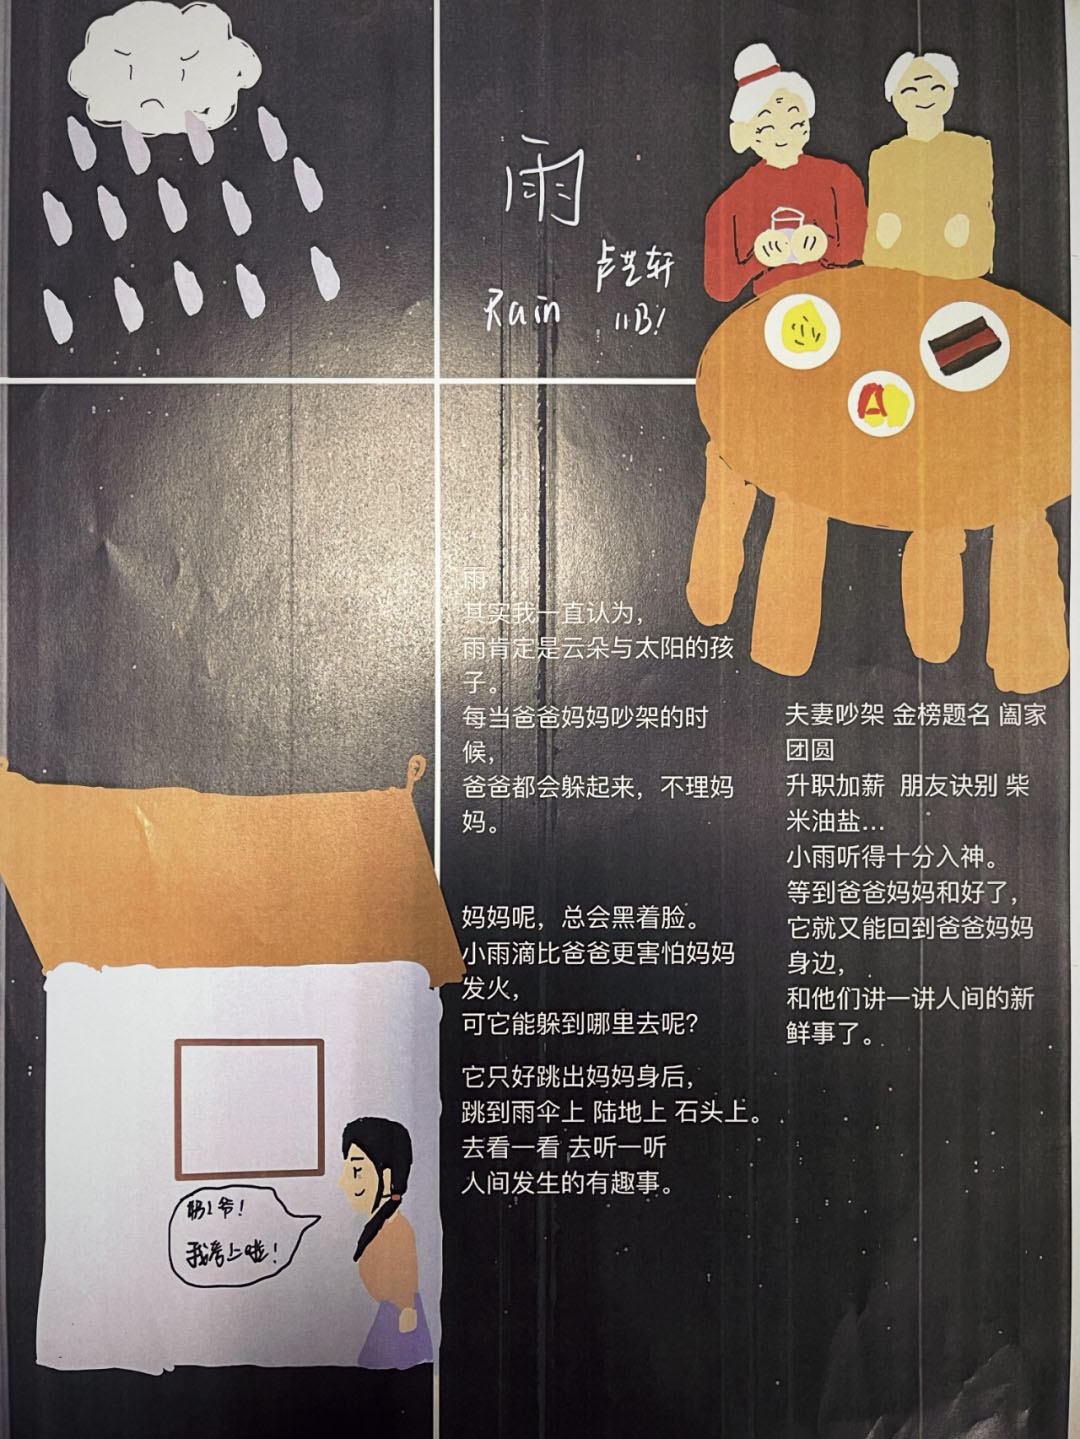 雨
卢芑轩
Rain
11B!
雨
其实我一直认为，
雨肯定是云朵与太阳的孩
子。
每当爸爸妈妈吵架的时
候，
爸爸都会躲起来，不理妈
妈。
妈妈呢，总会黑着脸。
小雨滴比爸爸更害怕妈妈
发火，
可它能躲到哪里去呢？
它只好跳出妈妈身后，
跳到雨伞上 陆地上 石头上。
去看一看 去听一听
人间发生的有趣事。
夫妻吵架 金榜题名 阖家
团圆
升职加薪 朋友诀别 柴
米油盐...
小雨听得十分入神。
等到爸爸妈妈和好了，
它就又能回到爸爸妈妈
身边，
和他们讲一讲人间的新
鲜事了。
爷！
我考上啦！